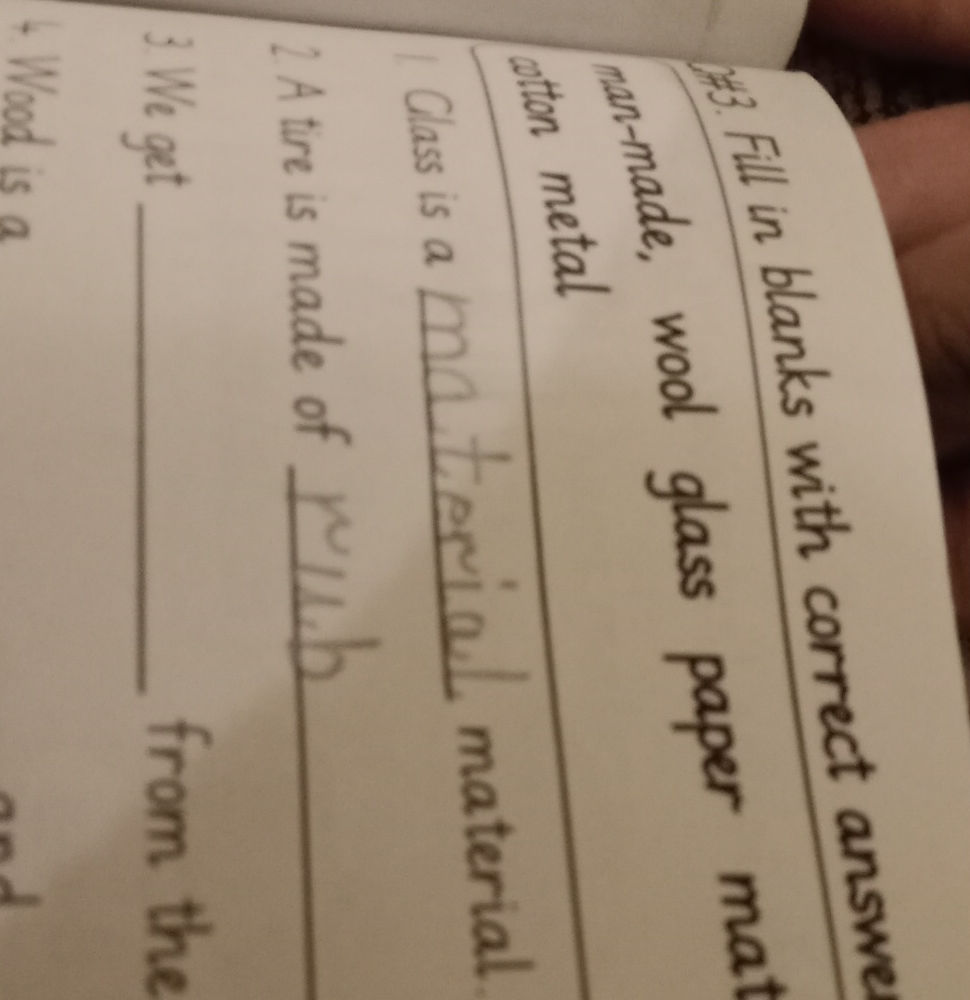 Q#3. Fill in blanks with correct answer
man-made, wool glass paper mat
cotton metal
1. Glass is a material material.
2. A tire is made of rub
3. We get ________ from the
4. Wood is a and